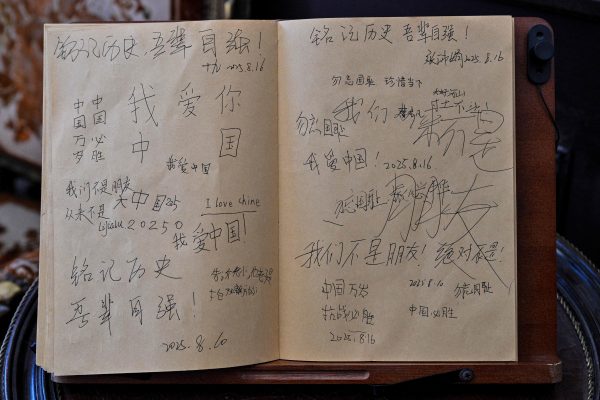 铭记历史,吾辈自强!
2025.8.16
中国万岁
中国必胜
我爱你
中国
我爱中国
我们不是朋友
从来不是
大中国
I love chine
20250
我爱中国!
铭记历史
吾辈自强!
2025.8.10
铭记历史 吾辈自强!
2025.8.16
勿忘国耻 珍惜当下
我们
勿忘国耻
我爱中国! 2025.8.16
勿忘国耻
朋友
我们不是朋友! 绝对不是!
中国万岁
抗战必胜
2025.8.16
2025.8.10
勿忘国耻
中国必胜